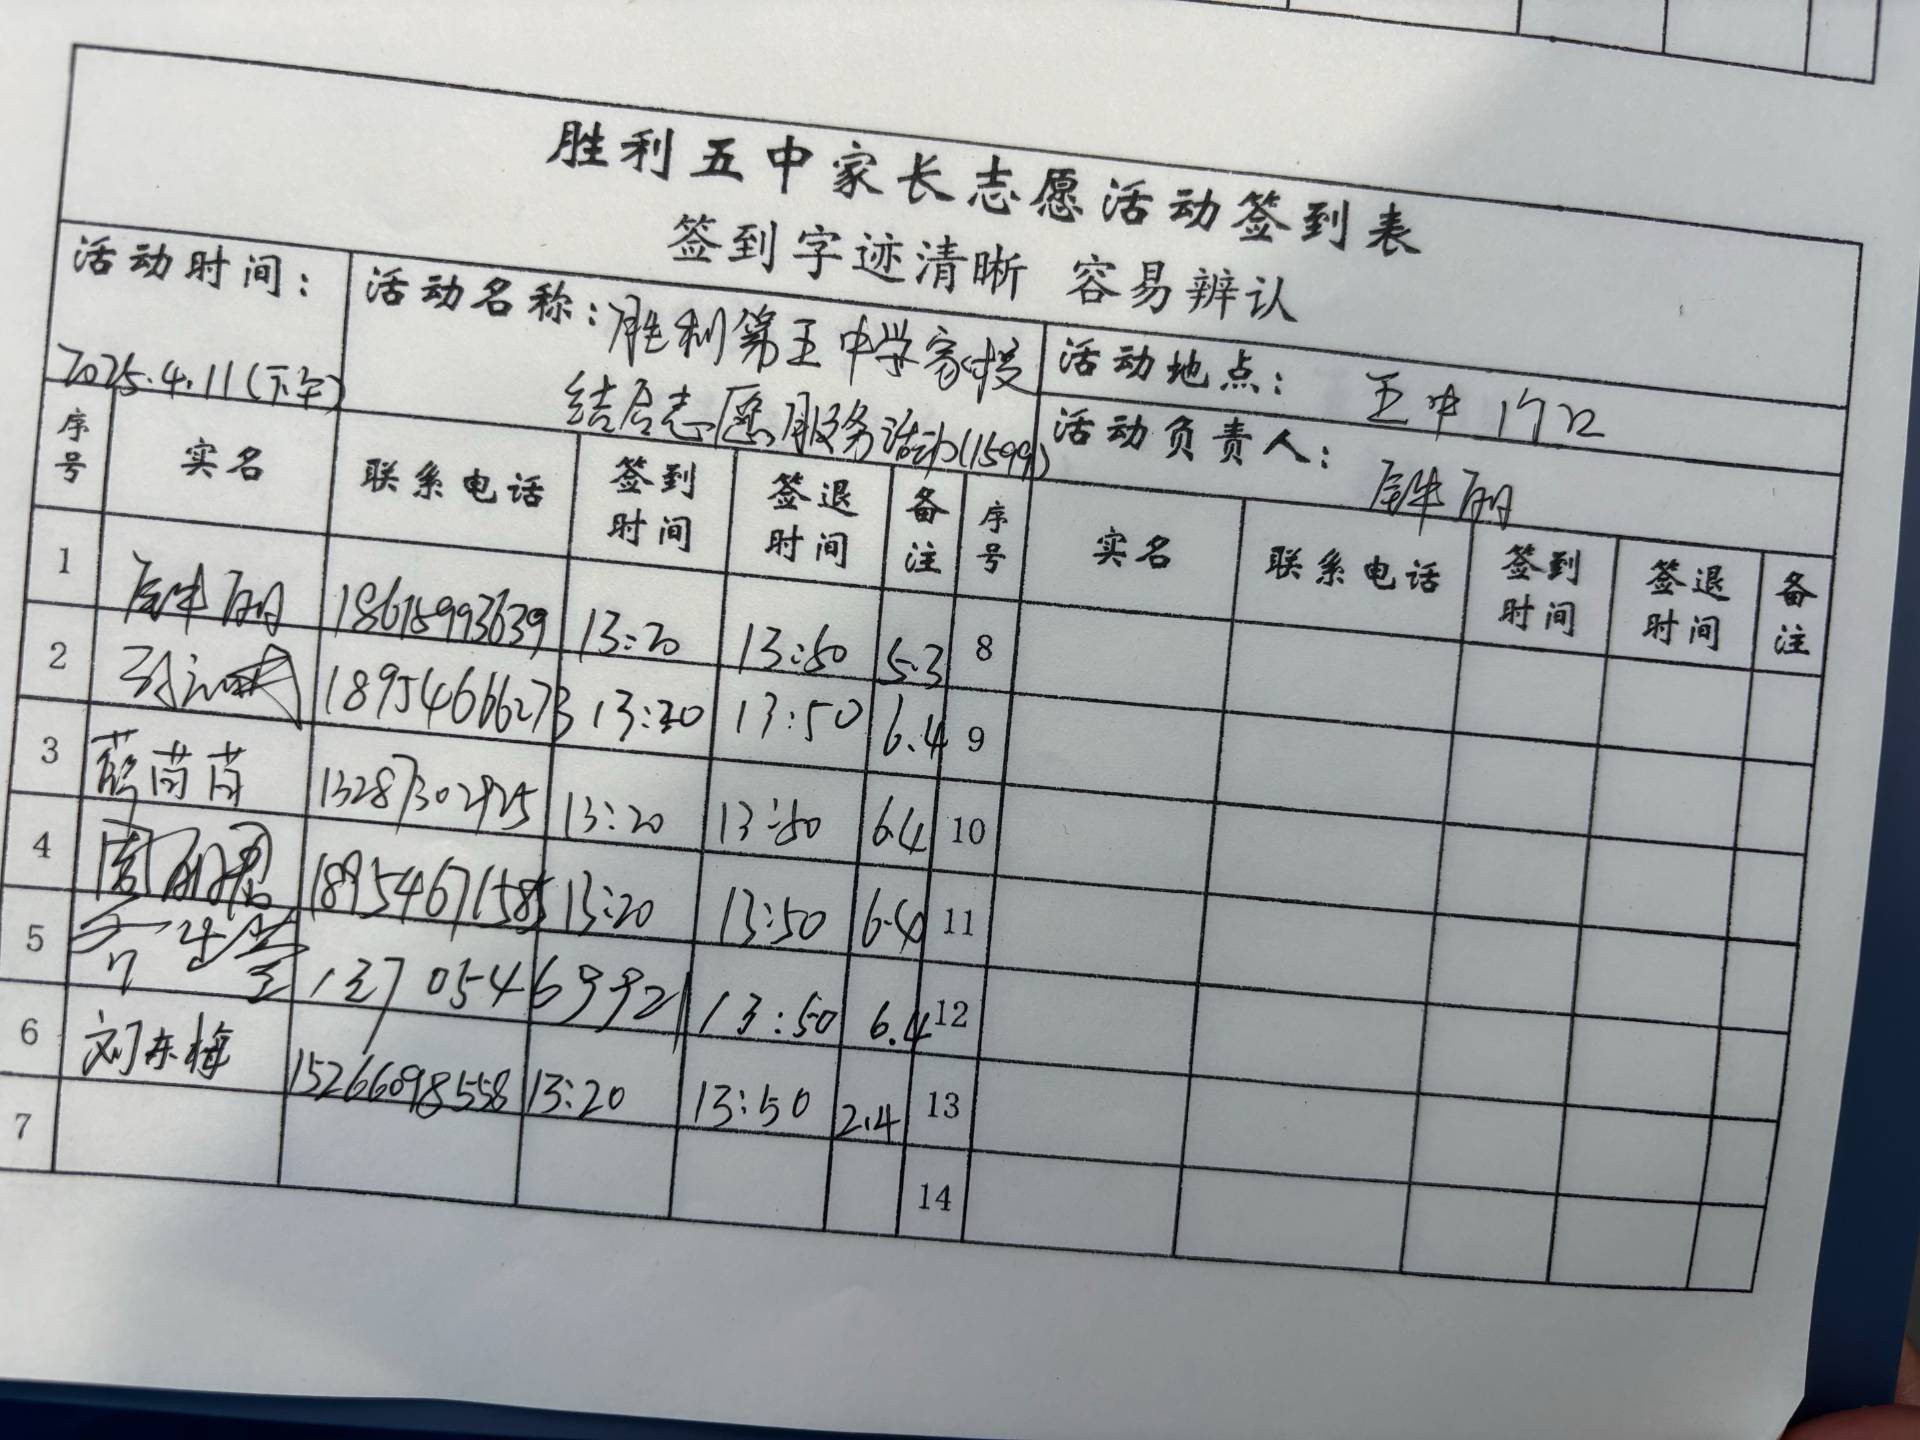 胜利五中家长志愿活动签到表
签到字迹清晰 容易辨认
活动时间：
2025.4.11(下午)
活动名称：胜利第五中学家校
结合志愿服务活动(1599)
活动地点： 五中门口
活动负责人：
序号 实名 联系电话 签到时间 签退时间 备注 序号 实名 联系电话 签到时间 签退时间 备注
1 18615993639 13:20 13:50 5.3 8
2 18954666273 13:20 13:50 6.4 9
3 薛苗苗 13:20 13:50 6.4 10
4 18954671585 13:20 13:50 6.4 11
5 13705469921 13:50 6.4 12
6 刘东梅 15266098558 13:20 13:50 2.4 13
7 14